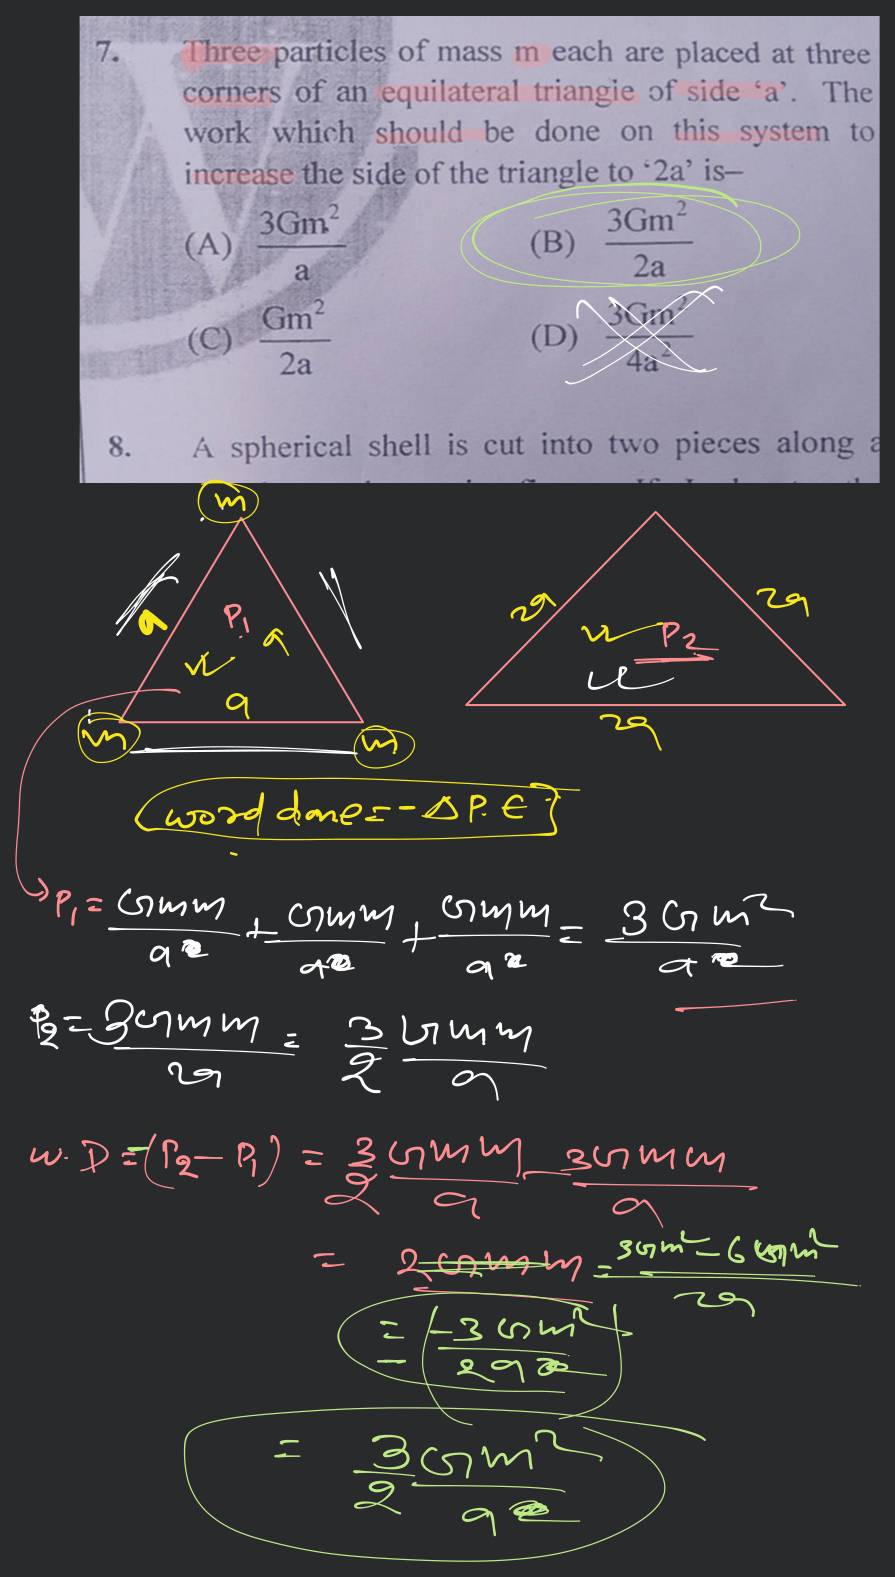 7. Three particles of mass m each are placed at three
corners of an equilateral triangle of side ‘a’. The
work which should be done on this system to
increase the side of the triangle to ‘2a’ is–
(A) 3Gm²/a (B) 3Gm²/2a
(C) Gm²/2a (D) 3Gm²/4a²
8. A spherical shell is cut into two pieces along a
m
P₁
a a
a
m m
2a 2a
P₂
2a
(word done = - Δ P.E]
P₁ = Gmm/a + Gmm/a + Gmm/a = 3Gm²/a
P₂ = 3Gmm/2a = 3/2 Gmm/a
W.D = -(P₂ - P₁) = 3/2 Gmm/a - 3Gmm/a
= = 3Gm² - 6Gm²/2a
= -3Gm²/2a
= 3/2 Gm²/a